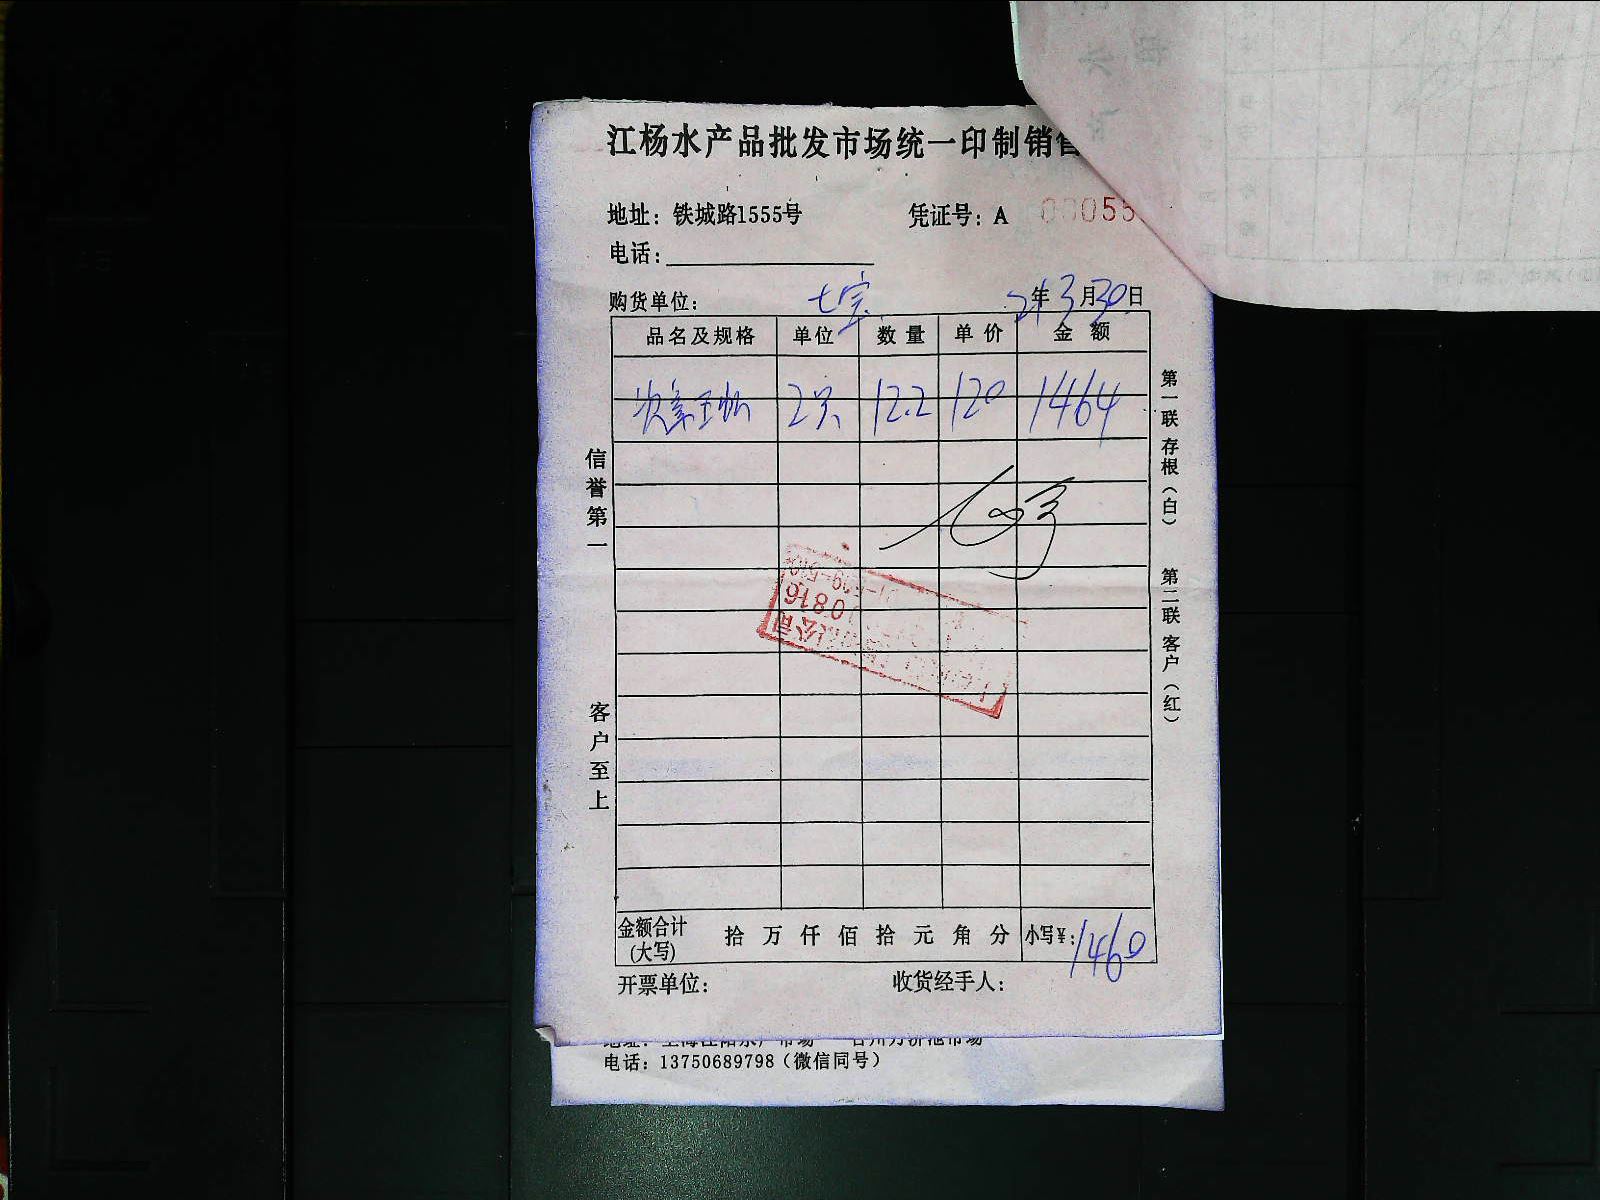 江杨水产品批发市场统一印制销售
地址：铁城路1555号 凭证号：A 00055
电话：
购货单位：七宝 21年3月30日
品名及规格 单位 数量 单价 金额
2只 12.2 120 1464
信誉第一
客户至上
第一联 存根（白）
第二联 客户（红）
0816
公司
金额合计(大写) 拾 万 仟 佰 拾 元 角 分 小写¥：1460
开票单位： 收货经手人：
电话：13750689798（微信同号）